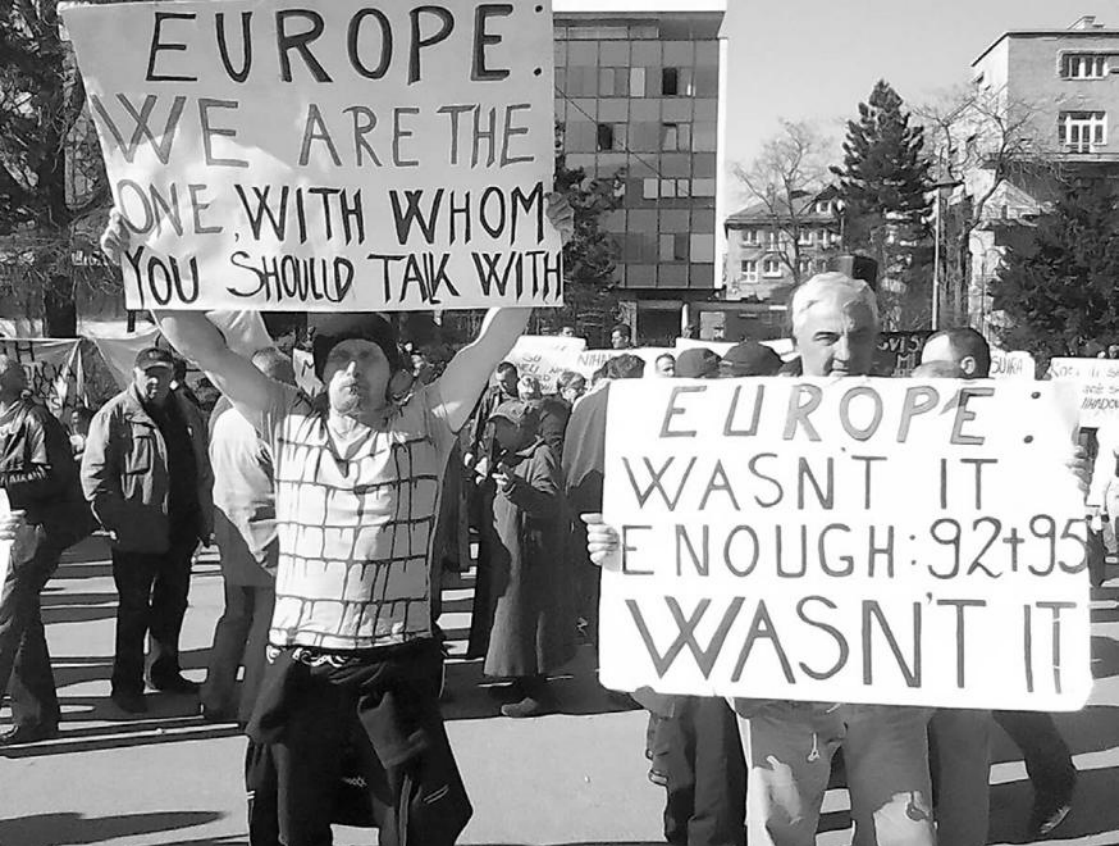 EUROPE:
WE ARE THE
ONE, WITH WHOM
YOU SHOULD TALK WITH
EUROPE:
WASN'T IT
ENOUGH:92+95
WASN'T IT